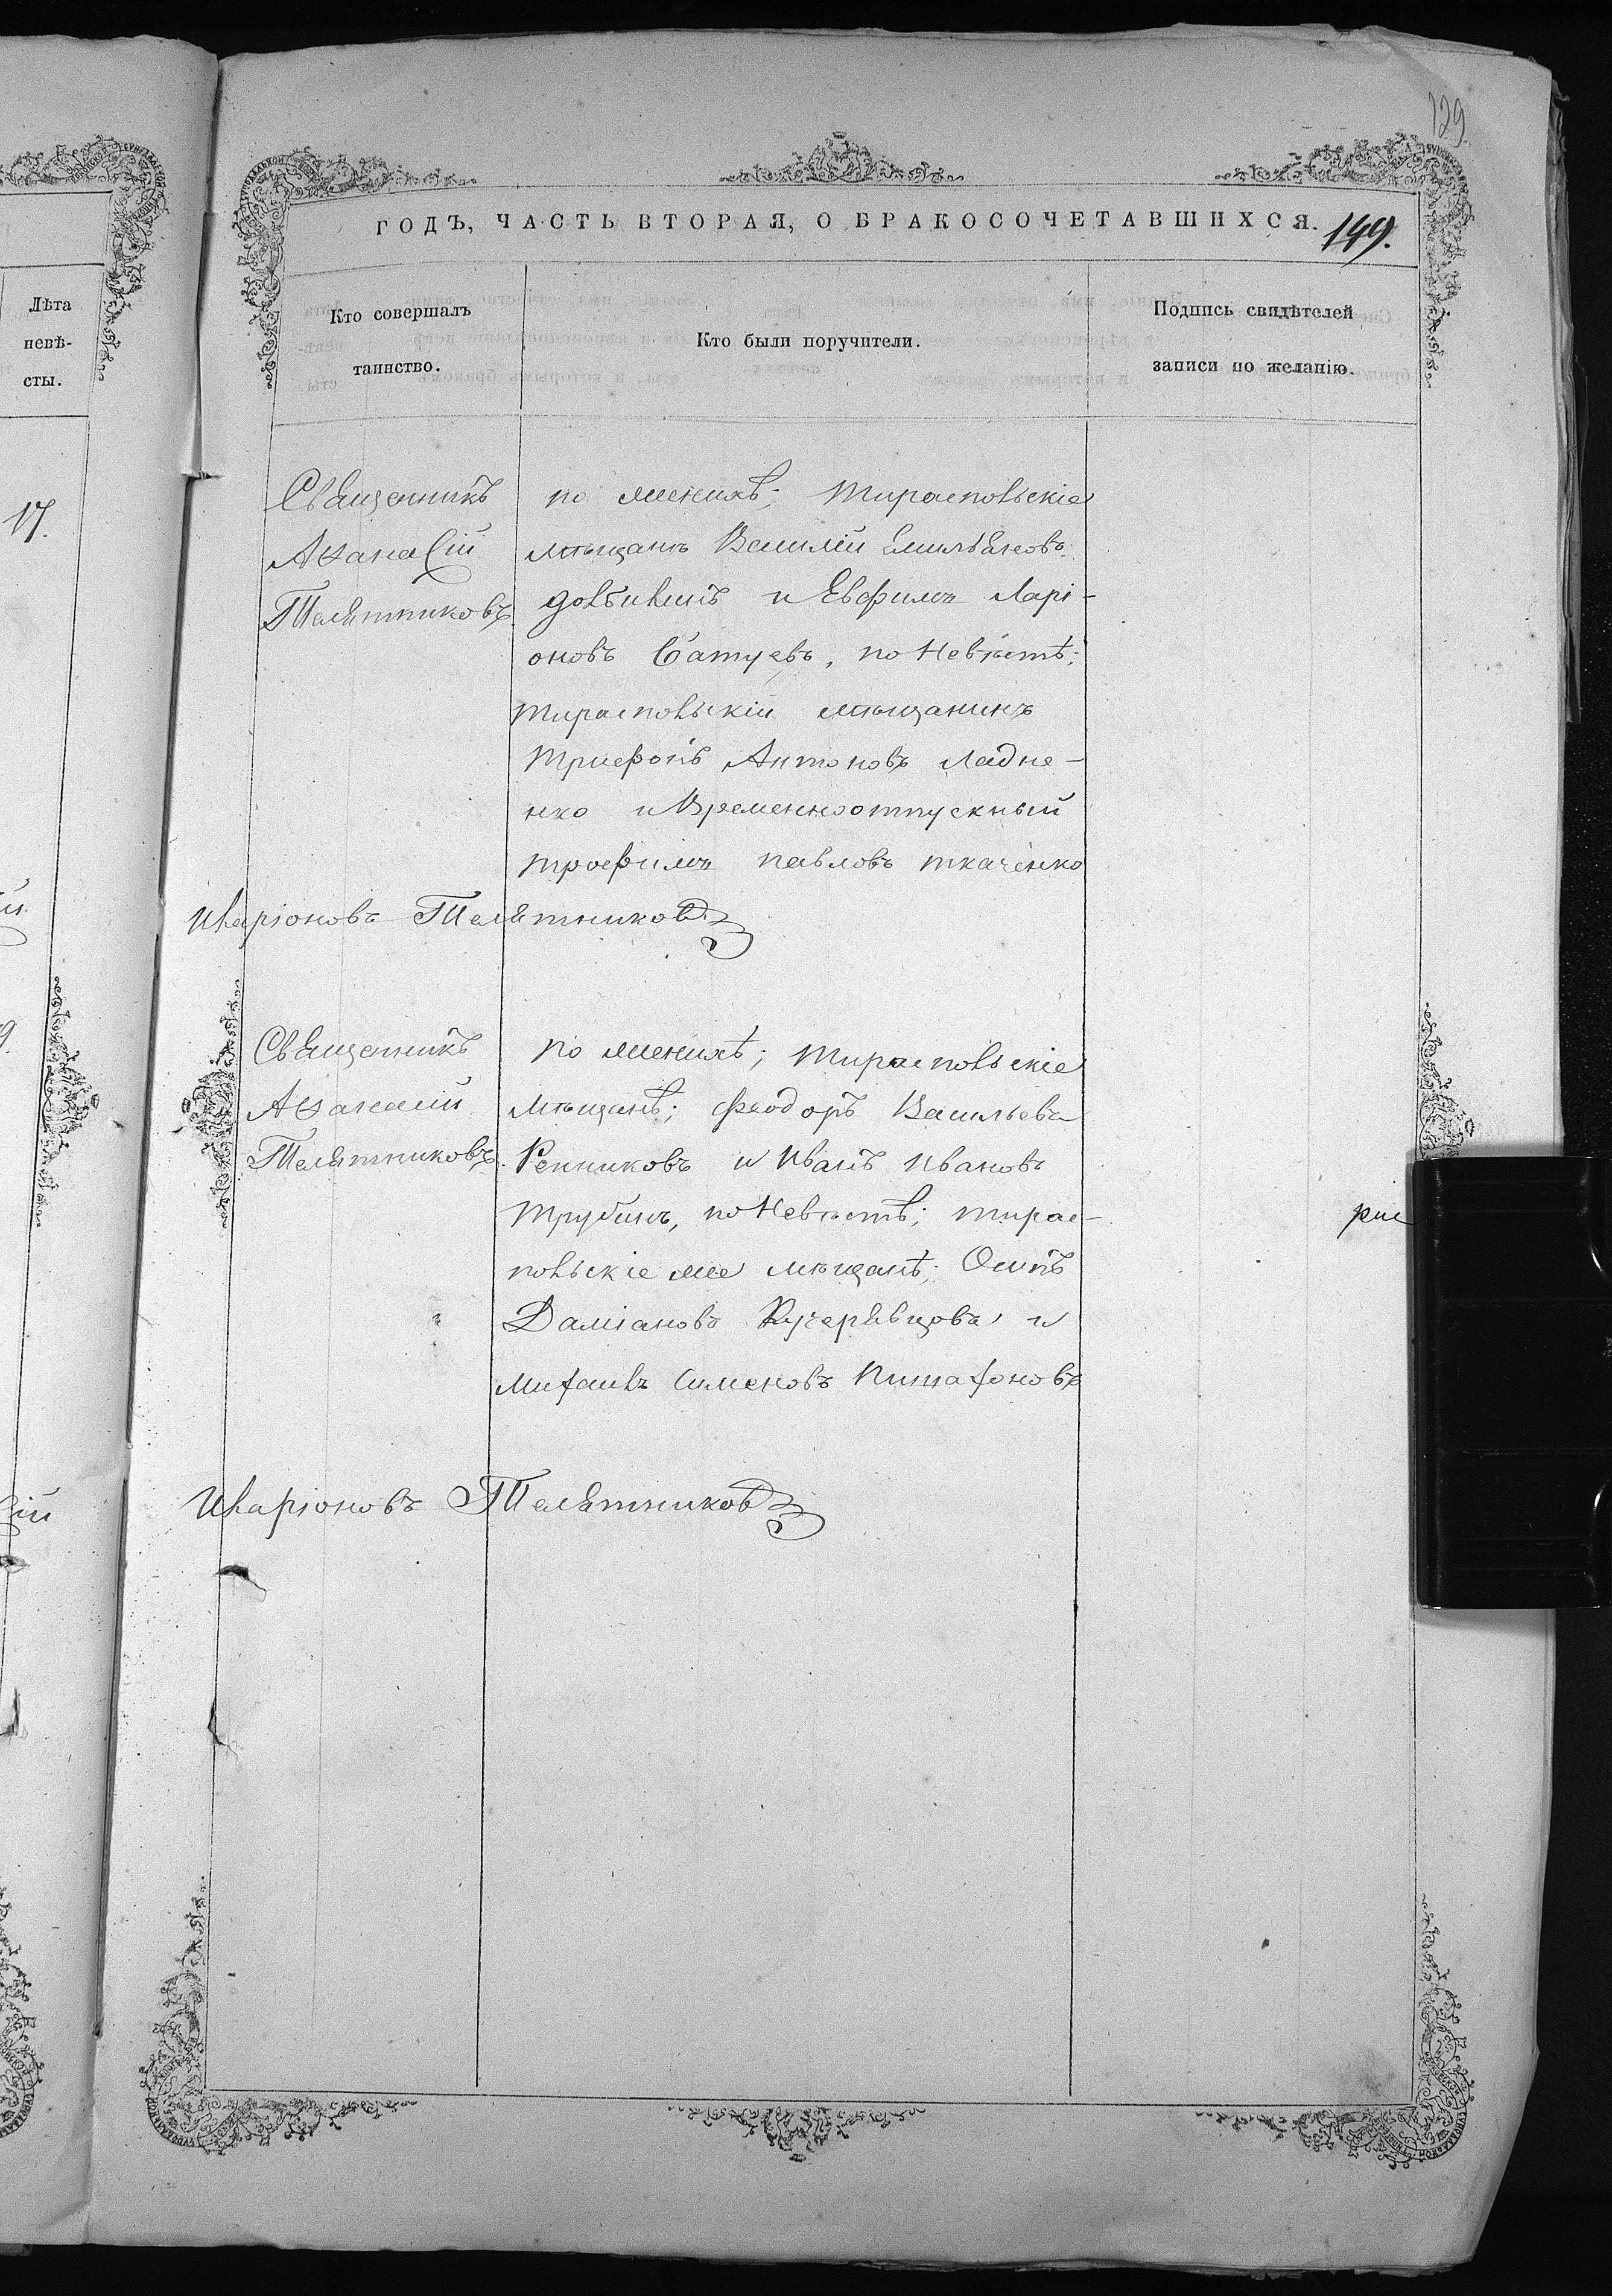 129
ГОДЪ, ЧАСТЬ ВТОРАЯ, О БРАКОСОЧЕТАВШИХСЯ. 149.
Лѣта
невѣ-
сты.
Кто совершалъ
таинство.
Кто были поручители.
Подпись свидѣтелей
записи по желанію.
17.
Священникъ
Аѳанасій
Телятниковъ.
по женихѣ; тираспольскіе
мѣщанъ Василій Емильяновъ
и Евфимъ Ларі-
оновъ Сатуевъ, по Невѣстѣ;
тираспольскій мѣщанинъ
трифонъ Антоновъ Ладне-
нко и Временноотпускный
трофимъ павловъ ткаченко
Иларіоновъ Телятниковъ
Священникъ
Аѳанасій
Телятниковъ.
по женихѣ; тираспольскіе
мѣщанѣ; Фѣодоръ Васильевъ
Репниковъ и Иванъ Ивановъ
трубинъ, по Невѣстѣ; тирас-
польскіе же мѣщанѣ; Осипъ
Даміановъ Кучерявцовъ и
Михаилъ Симеоновъ
Иларіоновъ Телятниковъ